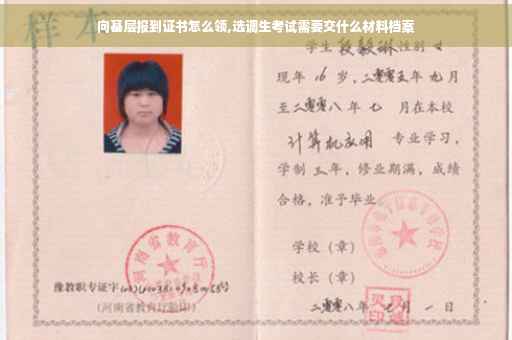 向基层报到证书怎么领,选调生考试需要交什么材料档案
样本
学生 性别 女
现年 16 岁，二零零五年 九月
至二零零八年 七 月在本校
计算机应用 专业学习，
学制 三年，修业期满，成绩
合格，准予毕业
学校（章）
校长（章）
二零零八年 七月 一日
河南省教育厅
豫教职专证字
（河南省教育厅验印）